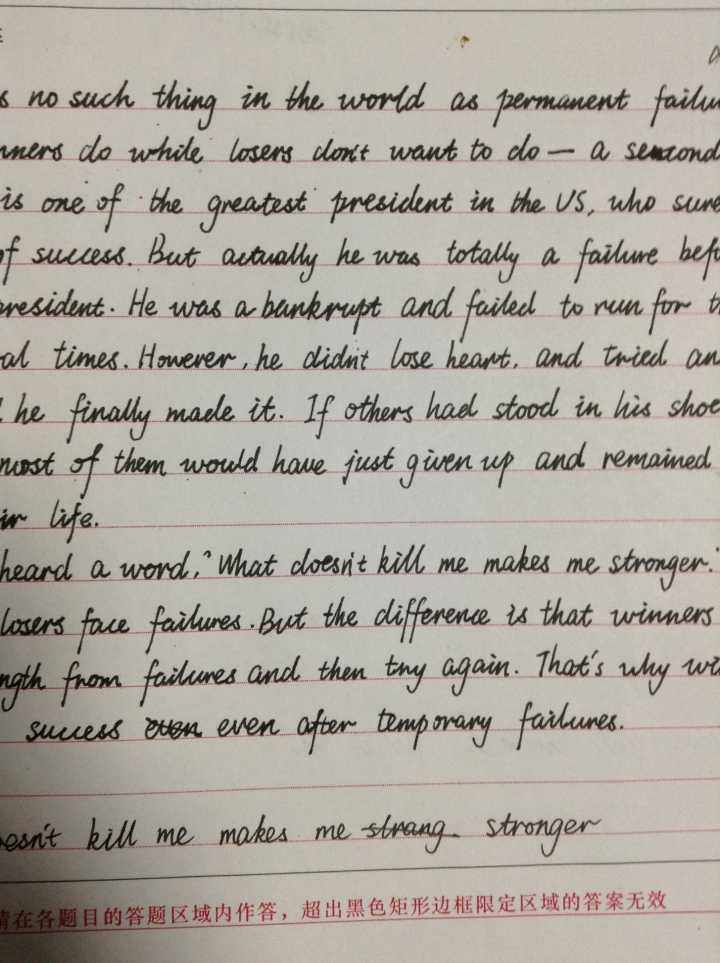 s no such thing in the world as permanent failu
nners do while losers don't want to do — a second
is one of the greatest president in the US, who sure
of success. But actually he was totally a failure befo
president. He was a bankrupt and failed to run for th
al times. However, he didn't lose heart, and tried an
he finally made it. If others had stood in his shoe
most of them would have just given up and remained
in life.
heard a word, "What doesn't kill me makes me stronger."
losers face failures. But the difference is that winners
ngth from failures and then try again. That's why wi
success even even after temporary failures.
oesn't kill me makes me strang stronger
请在各题目的答题区域内作答，超出黑色矩形边框限定区域的答案无效